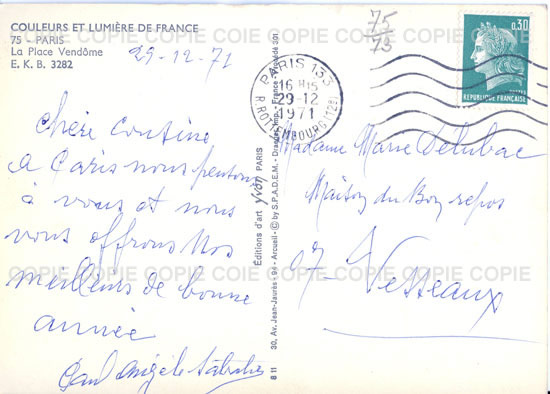 COULEURS ET LUMIÈRE DE FRANCE
75 - PARIS
La Place Vendôme
E. K. B. 3282
29-12-71
75
73
0,30
REPUBLIQUE FRANÇAISE
PARIS 133
16 H15
29-12
1971
R.ROTTEMBOURG (12E)
Chère Cousine
A Paris nous pensons
à vous et nous
vous offrons nos
meilleurs de bonne
année
Paul Angèle
Éditions d'art yvon PARIS
30, Av. Jean-Jaurès - 94 - Arcueil - © by S.P.A.D.E.M. - Draeger, Imp. - France - Procédé 301
8 11
Madame Marie Délubac
Maison du Bon repos
07- Vesseaux
COPIE COPIE COPIE COPIE COPIE
COPIE COPIE COPIE COPIE COPIE
COPIE COPIE COPIE COPIE COPIE